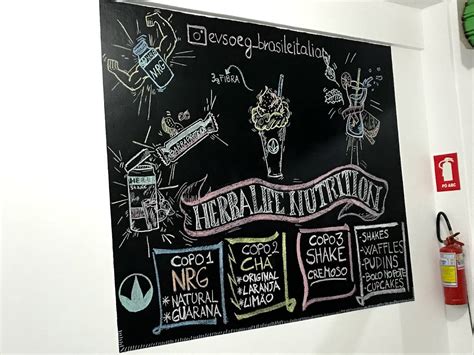 evsoeg_brasileitalia
NRG
3g FIBRA
HERBALIFE NUTRITION
COPO 1
NRG
*NATURAL
*GUARANA
COPO 2
CHÁ
*ORIGINAL
*LARANJA
*LIMÃO
COPO 3
SHAKE
CREMOSO
-SHAKES
-WAFFLES
-PUDINS
-BOLO NO POTE
-CUPCAKES
PÓ ABC